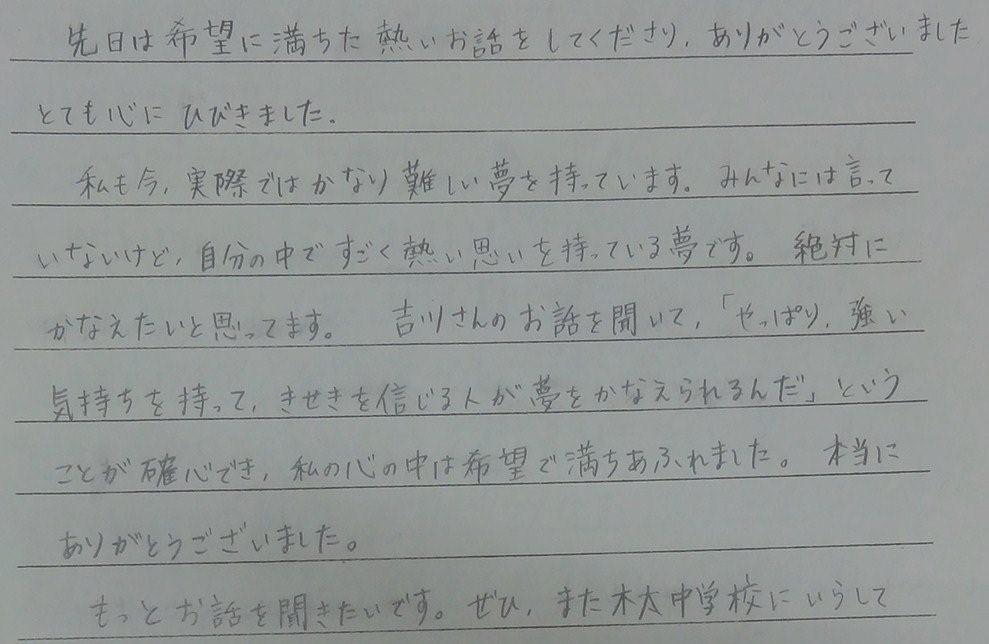 先日は希望に満ちた熱いお話をしてくださり、ありがとうございました
とても心にひびきました。
私も今、実際ではかなり難しい夢を持っています。みんなには言って
いないけど、自分の中ですごく熱い思いを持っている夢です。絶対に
かなえたいと思ってます。 吉川さんのお話を聞いて、「やっぱり、強い
気持ちを持って、きせきを信じる人が夢をかなえられるんだ」という
ことが確心でき、私の心の中は希望で満ちあふれました。本当に
ありがとうございました。
もっとお話を聞きたいです。ぜひ、また木太中学校にいらして